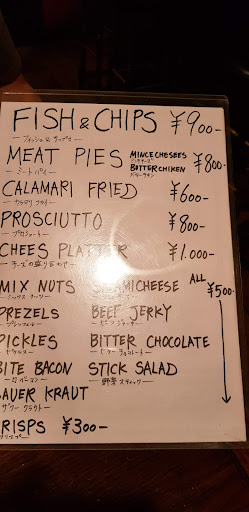 FISH & CHIPS ¥900-
フィッシュ& チップス
MEAT PIES MINCECHESEES ¥800-
ミートパイ
BITTERCHIKEN
バターチキン
CALAMARI FRIED ¥600-
カラマリ フライ
PROSCIUTTO ¥800-
プロシュート
CHEES PLATTER ¥1.000-
チーズの盛り合わせ
MIX NUTS MICHEESE ALL ¥500-
ミックス ナッツ
PREZELS BEEF JERKY
プレッツェル ビーフ ジャーキー
PICKLES BITTER CHOCOLATE
ピクルス ビター チョコレート
BITE BACON STICK SALAD
ベーコン 野菜 スティック
SAUER KRAUT
ザワー クラウト
CRISPS ¥300-